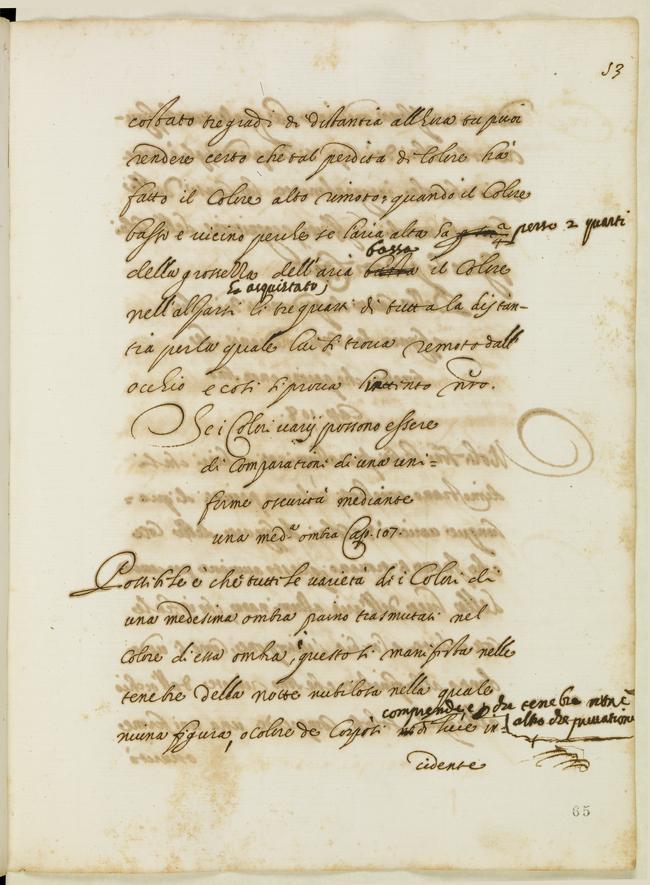 53
costato tre gradi di distantia all'hora tu puoi
rendere certo che tal perdita di Colore hà
fatto il Colore alto remoto, quando il Colore
basso e vicino perche se l'aria alta hà perso 2 quarti
della grossezza dell'aria bassa il Colore
nell'alzarsi hà acquistato, li tre quarti di tutta la distan-
tia per la quale lui si trova remoto dall'
occhio e cosi si prova l'intento nro.
Se i Colori varij possono essere
di Comparationi di una uni=
forme oscurità mediante
una med.ª ombra Cap. 107.
Possibile è che tutti le varietà di i Colori di
una medesima ombra paino trasmutati nel
Colore di essa ombra, questo si manifesta nelle
tenebre della notte nubilosa nella quale
niuna figura, o Colore de Corpo si comprende e p che tenebre non è altro che privatione di luce in=
cidente
65